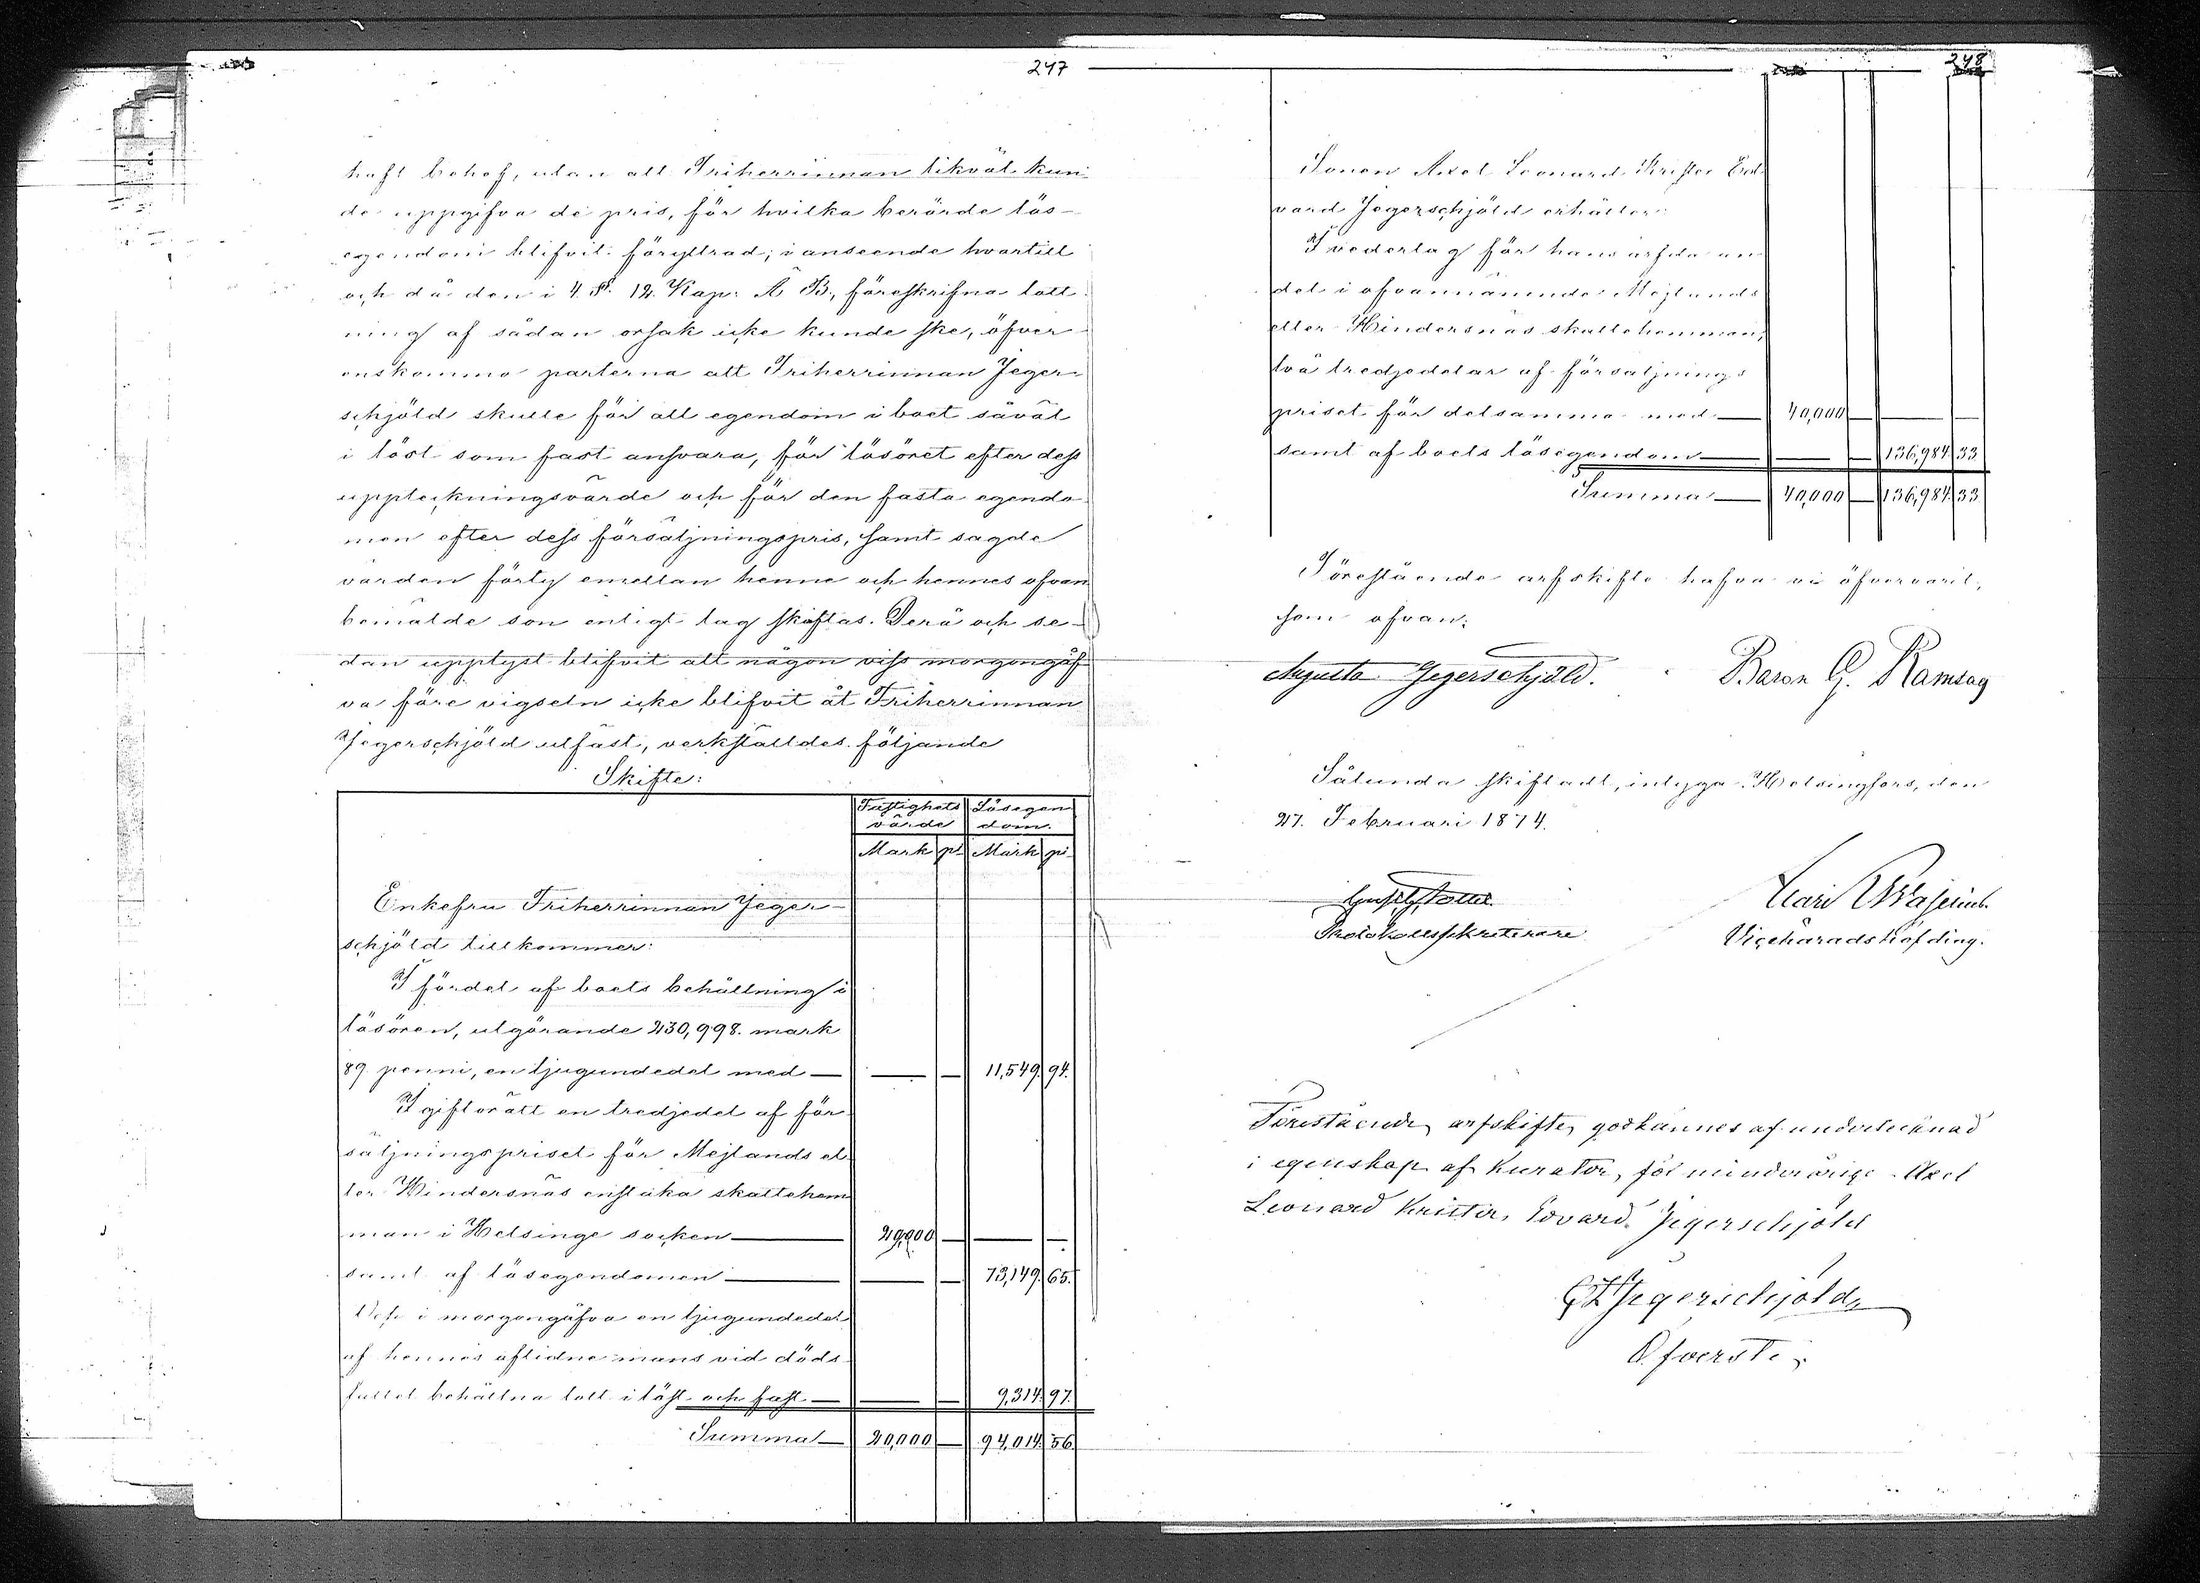 247
haft behof, utan att Friherrinnan likväl kun-
de uppgifva de pris, för hvilka berörde lös-
egendom blifvit föryttrad; i anseende hvartill
och då den i 4 §. 12 Kap. Ä B., föreskrifna lott-
ning af sådan orsak icke kunde ske, öfver-
enskommo parterna att Friherrinnan Jeger-
schjöld skulle för all egendom i boet såväl
i löst som fast ansvara, för lösöret efter dess
uppteckningsvärde och för den fasta egendo-
men efter dess försäljningspris, samt sagde
värden förty emellan henne och hennes ofvan-
bemälde son enligt lag skiftas. Derå och se-
dan upplyst blifvit att någon viss morgongåf-
va före vigseln icke blifvit åt Friherrinnan
Jegerschjöld utfäst, verkställdes följande
Skifte:
Fastighets Lösegen
värde dom.
Mark pi Mark pi
Enkefru Friherrinnan Jeger-
schjöld tillkommer:
I fördel af boets behållning i
lösören, utgörande 230,998 mark
89 penni, en tjugundedel med — — — 11,549. 94.
I giftorätt en tredjedel af för-
säljningspriset för Mejlands el-
ler Hindersnäs enstaka skattehem-
man i Helsinge socken — 20,000 — — —
samt af lösegendomen — — — 73,149. 65.
Och i morgongåfva en tjugundedel
af hennes aflidne mans vid döds-
fallet behållna lott i löst och fast — — — 9,314. 97.
Summa — 20,000 — 94,014. 56
248
Sonen Axel Leonard Krister Ed-
vard Jegerschjöld erhåller:
I vederlag för hans ärfda an-
del i ofvannämnde Mejlands
eller Hindersnäs skattehemman,
två tredjedelar af försäljnings
priset för detsamma med — 40,000 — — —
samt af boets lösegendom — — — 136,984. 33
Summa — 40,000 — 136,984. 33
Förestående arfskifte hafva vi öfvervarit,
som ofvan:
Augusta Jegerschjöld. Baron G. Ramsay
Sålunda skiftadt, intyga. Helsingfors, den
27. Februari 1874.
Carl
Protokollssekreterare Vicehäradshöfding.
Förestående arfskifte, godkännes af undertecknad
i egenskap af Kurator, för minderårige Axel
Leonard Krister Edvard Jegerschjöld
Jegerschjöld
Öfverste.